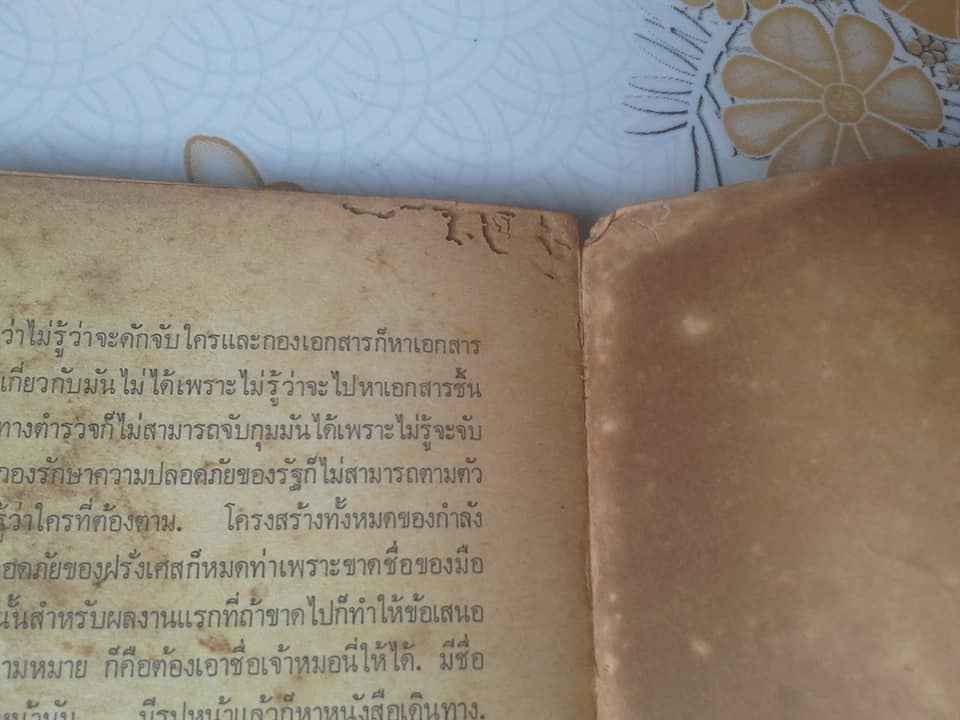 ว่าไม่รู้ว่าจะดักจับใครและกองเอกสารก็หาเอกสาร
เกี่ยวกับมันไม่ได้เพราะไม่รู้ว่าจะไปหาเอกสารชิ้น
ทางตำรวจก็ไม่สามารถจับกุมมันได้เพราะไม่รู้จะจับ
กองรักษาความปลอดภัยของรัฐก็ไม่สามารถตามตัว
รู้ว่าใครที่ต้องตาม. โครงสร้างทั้งหมดของกำลัง
อดภัยของฝรั่งเศสก็หมดท่าเพราะขาดชื่อของมือ
นั้นสำหรับผลงานแรกที่ถ้าขาดไปก็ทำให้ข้อเสนอ
ามหมาย ก็คือต้องเอาชื่อเจ้าหมอนี่ให้ได้. มีชื่อ
หน้ามัน มีรูปหน้าแล้วก็หาหนังสือเดินทาง.